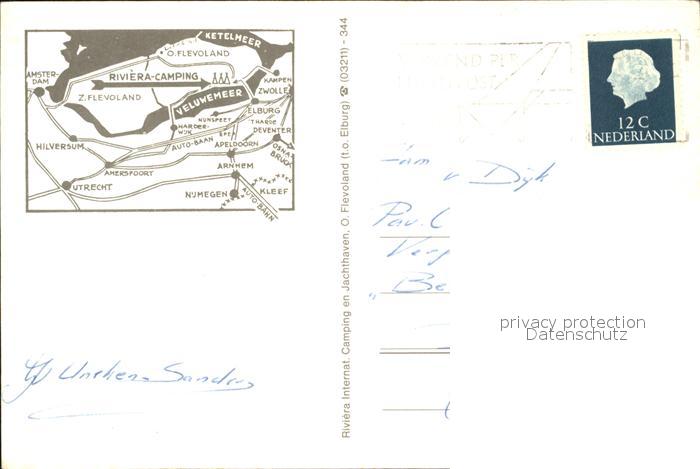 KETELMEER
O. FLEVOLAND
AMSTER-
DAM
RIVIÈRA-CAMPING
KAMPEN
ZWOLLE
Z. FLEVOLAND
VELUWEMEER
ELBURG
NUNSPEET
'THARDE
HARDER-
WIJK
EPE
DEVENTER
HILVERSUM
AUTO-BAAN
APELDOORN
OSNA-
BRUCK
AMERSFOORT
ARNHEM
UTRECHT
NIJMEGEN
KLEEF
AUTO-BAHN
Rivièra Internat. Camping en Jachthaven, O. Flevoland (t.o. Elburg) ☎ (03211) - 344
12 C
NEDERLAND
Fam
v Dijk
Pav. C
"Be
privacy protection
Datenschutz